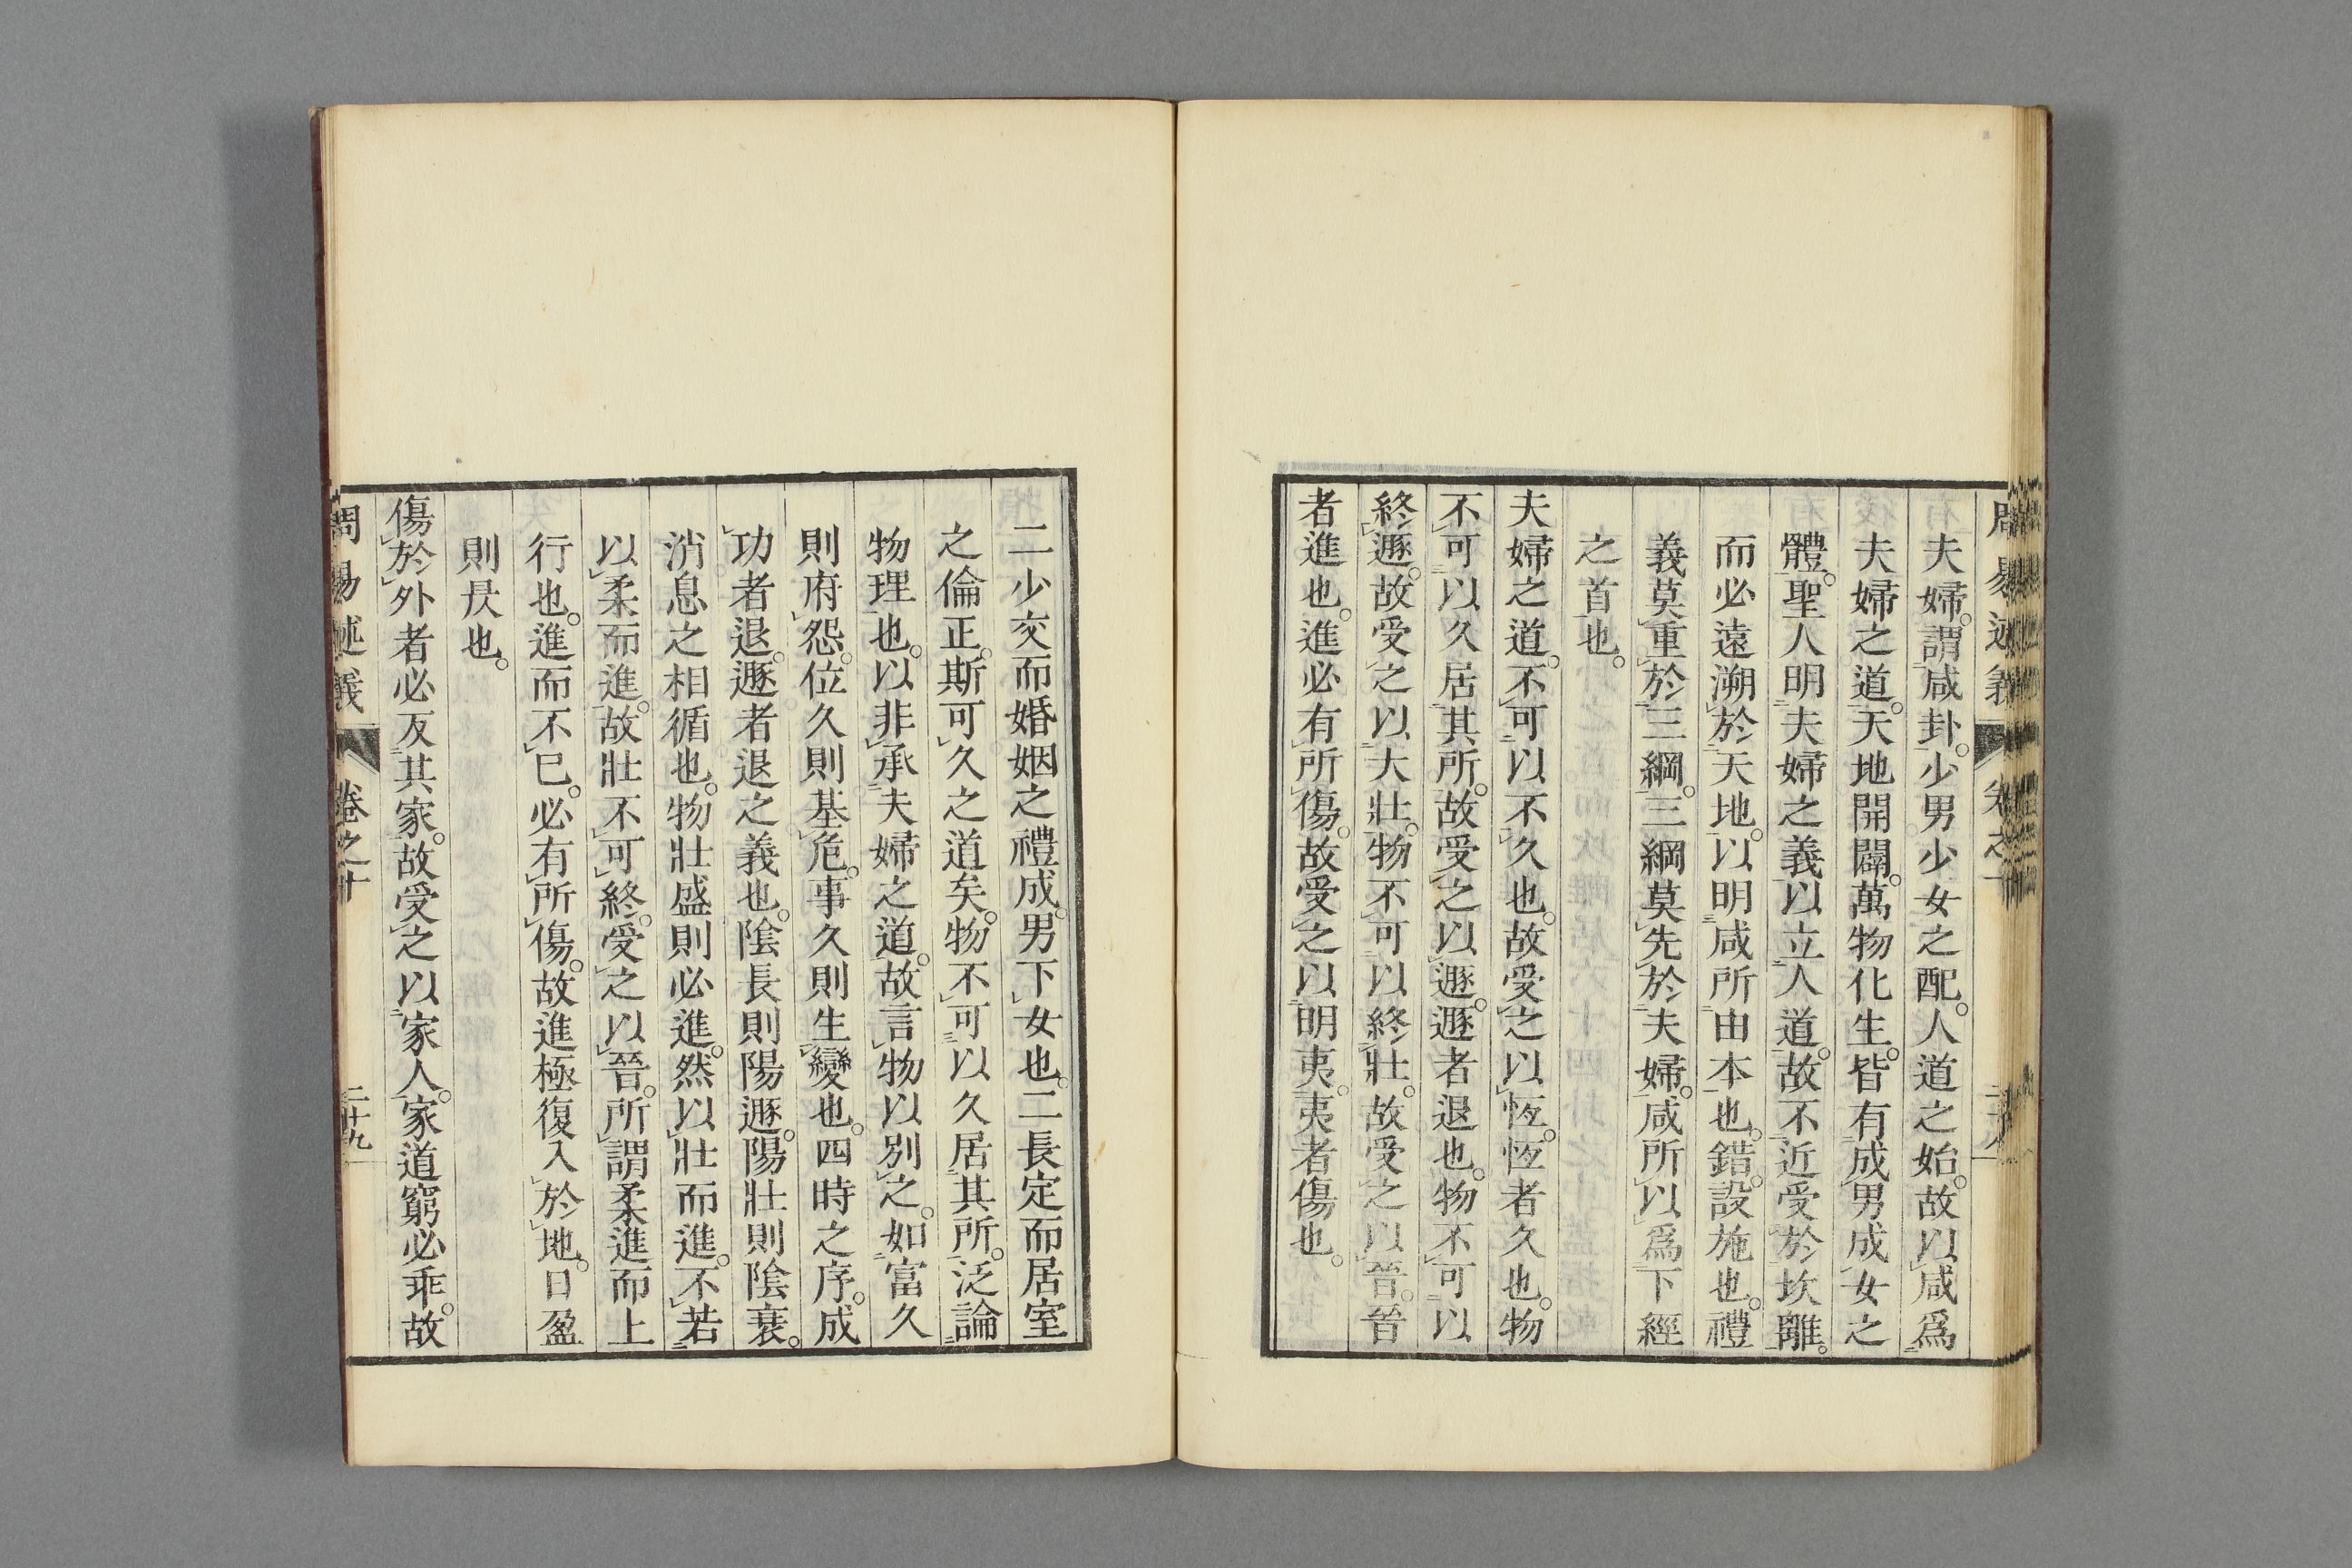 周易述義
卷之十
夫婦。謂咸卦。少男少女之配。人道之始。故以咸爲
夫婦之道。天地開闢。萬物化生。皆有成男成女之
體。聖人明夫婦之義以立人道。故不近受於坎離。
而必遠溯於天地。以明咸所由本也。錯設施也。禮
義莫重於三綱。三綱莫先於夫婦。咸所以爲下經
之首也。
夫婦之道。不可以不久也。故受之以恆。恆者久也。物
不可以久居其所。故受之以遯。遯者退也。物不可以
終遯。故受之以大壯。物不可以終壯。故受之以晉。晉
者進也。進必有所傷。故受之以明夷。夷者傷也。
二少交而婚姻之禮成。男下女也。二長定而居室
之倫正。斯可久之道矣。物不可以久居其所。泛論
物理也。以非承夫婦之道。故言物以別之。如富久
則府怨。位久則基危。事久則生變也。四時之序。成
功者退。遯者退之義也。陰長則陽遯。陽壯則陰衰。
消息之相循也。物壯盛則必進。然以壯而進。不若
以柔而進。故壯不可終。受之以晉。所謂柔進而上
行也。進而不已。必有所傷。故進極復入於地。日盈
則昃也。
傷於外者必反其家。故受之以家人。家道窮必乖。故
周易述義
卷之十
二十九